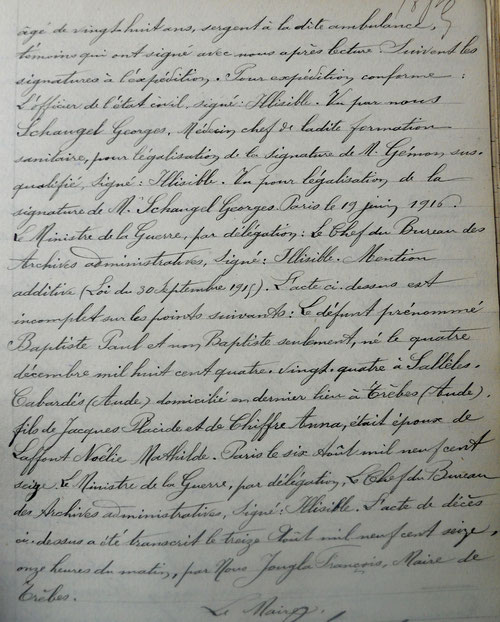 âgé de vingt-huit ans, sergent à la dite ambulance,
témoins qui ont signé avec nous après lecture. Suivent les
signatures à l'expédition. Pour expédition conforme :
L'officier de l'état civil, signé : Illisible. Vu par nous
Schangel Georges, Médecin chef de ladite formation
sanitaire, pour légalisation de la signature de M. Gémon sus-
qualifié, signé : Illisible. Vu pour légalisation de la
signature de M. Schangel Georges. Paris le 19 juin 1916.
Le Ministre de la Guerre, par délégation : Le Chef du Bureau des
Archives administratives, Signé : Illisible. Mention
additive (Loi du 30 Septembre 1915). L'acte ci-dessus est
incomplet sur les points suivants : Le défunt prénommé
Baptiste Paul et non Baptiste seulement, né le quatre
décembre mil huit cent quatre-vingt-quatre à Sallèles-
Cabardès (Aude) domicilié en dernier lieu à Trèbes (Aude).
fils de Jacques Placide et de Chiffre Anna, était époux de
Laffont Noélie Mathilde. Paris le six Août mil neuf cent
seize. Le Ministre de la Guerre, par délégation, Le Chef du Bureau
des Archives administratives, Signé : Illisible. L'acte de décès
ci-dessus a été transcrit le treize Août mil neuf cent seize,
onze heures du matin, par Nous Jougla François, Maire de
Trèbes.
Le Maire,